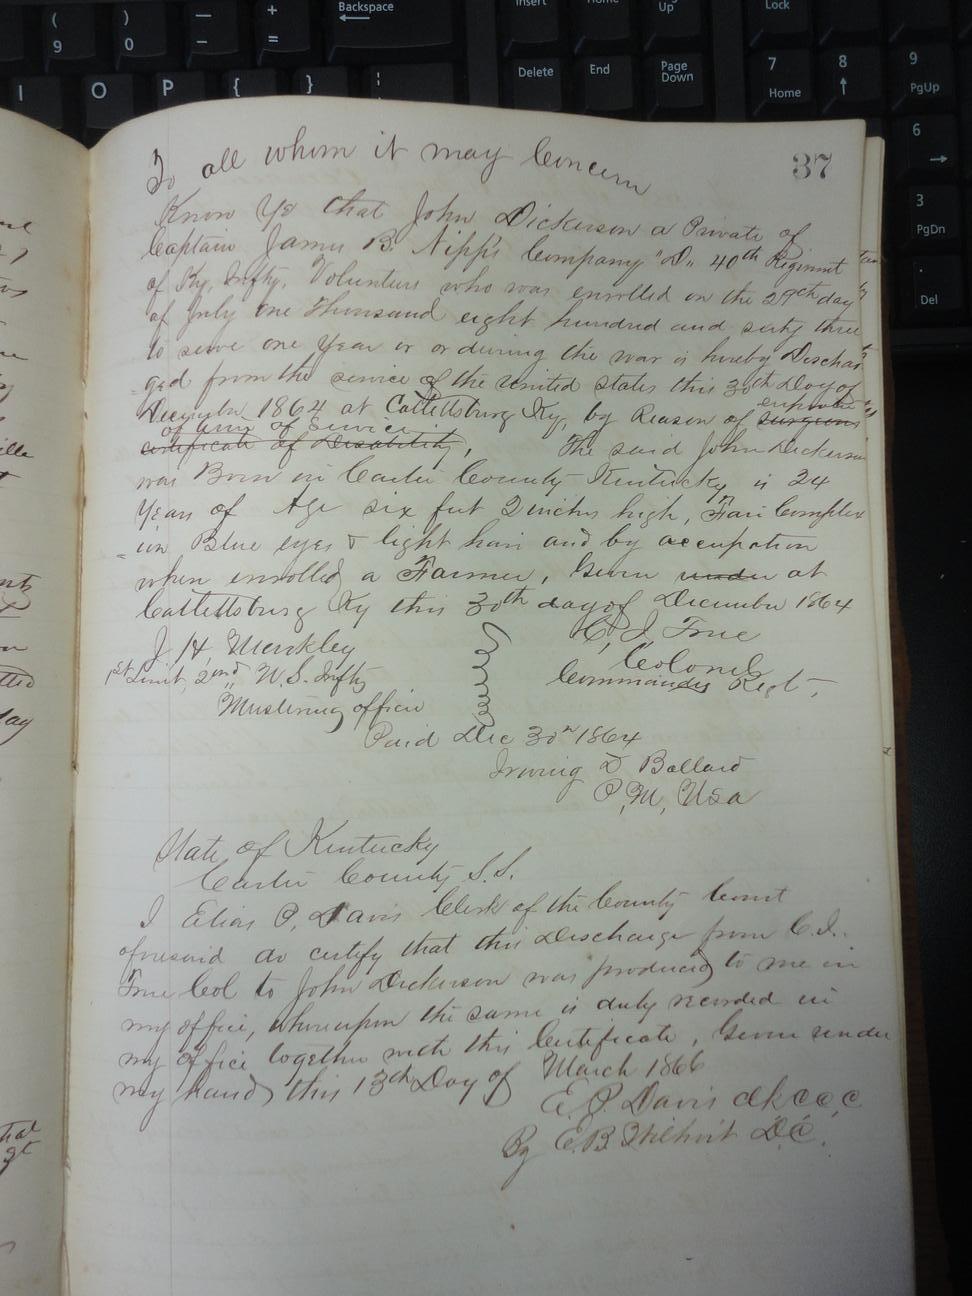 ( 9
) 0
— -
+ =
Backspace
Insert
Home
Up
Lock
I O P { }
Delete
End
Page Down
7 Home
8
9 PgUp
6
3 PgDn
. Del
37
To all whom it may Concern
Know Ye that John Dickerson a Private of
Captain James B. Nipp's Company "D" 40th Regiment
of Ky, Infty, Volunteers who was enrolled on the 29th day
of July one Thousand eight hundred and sixty three
to serve one year or or during the war is hereby Deschar
ged from the service of the United States this 30th Day of
December 1864 at Catlettsburg Ky, by Reason of surgeons
of term of Service
certificate of Disability, The said John Dickerson
was Born in Carter County Kentucky is 24
Years of Age six feet 2 inches high, Fair Complex
ion Blue eyes & light hair and by accupation
when enrolled a Farmer, Given under at
Catlettsburg Ky this 30th day of December 1864
J H
C, J, True
1st Lieut, 2nd U.S. Infty
Colonel
Commanding Regt,
Mustering officer
Paid Dec 30th 1864
Irving D Ballard
P,M, USa
State of Kentucky
Carter County S.S.
I Elias P, Davis Clerk of the County Court
aforesaid do certify that this Discharge from C.J.
True Col to John Dickerson was produced to me in
my office, whereupon the same is duly recorded in
my office together with this Certificate, Given under
my hand this 13th Day of March 1866
E. P. Davis clk c c c
By E.B. Wilhoit D.C.